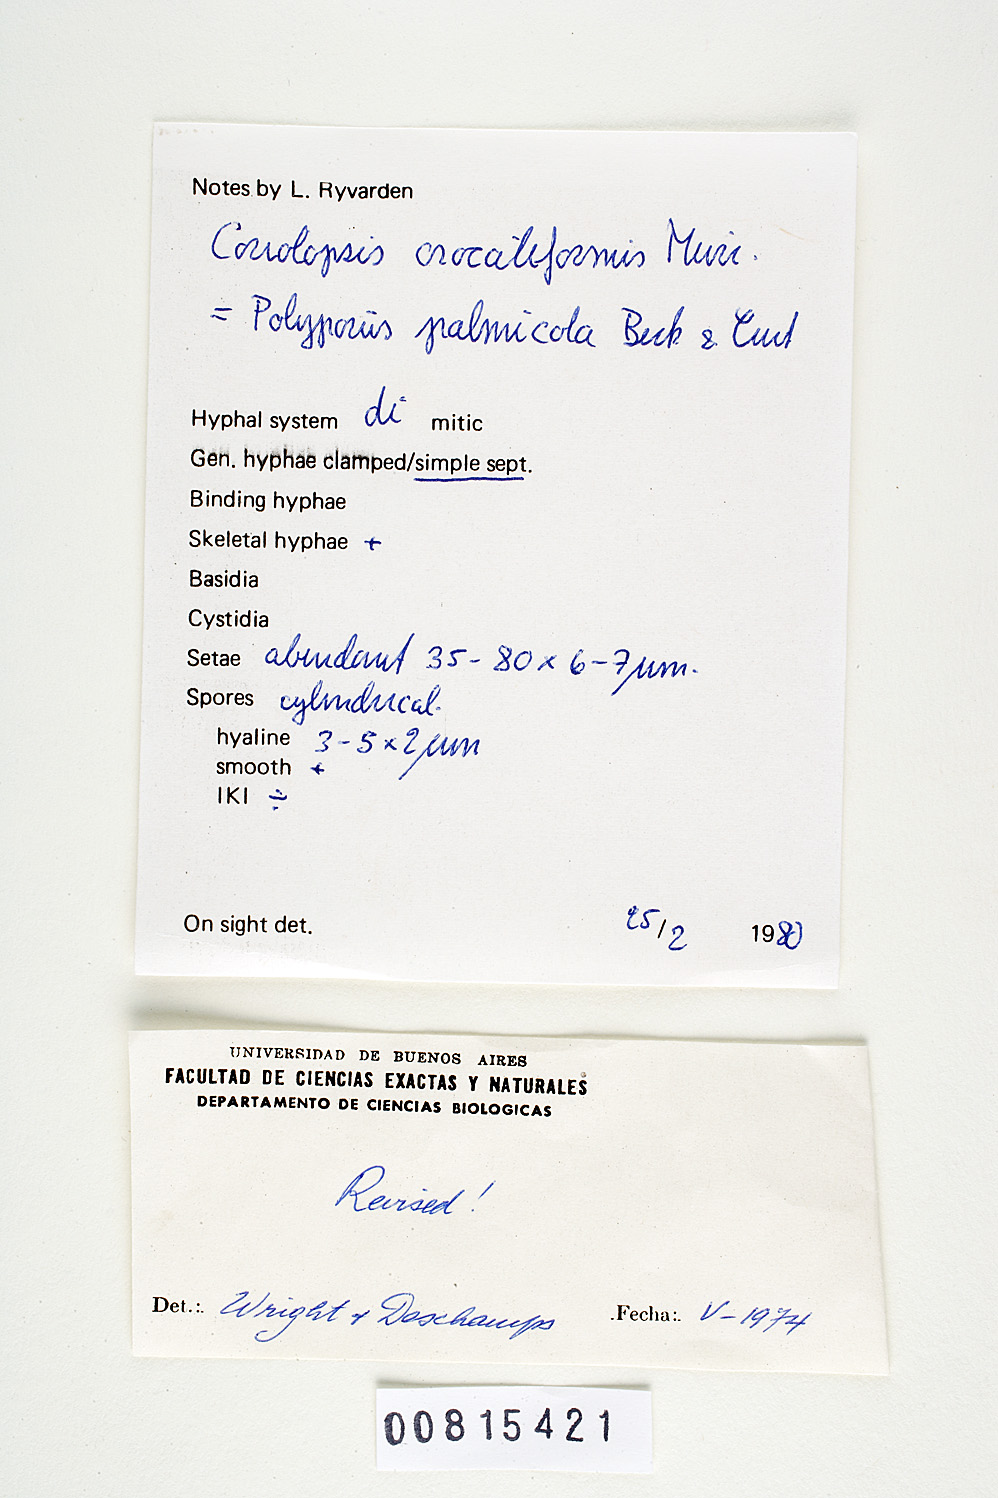 Notes by L. Ryvarden
Coriolopsis crocatiformis Murr.
= Polyporus palmicola Berk & Curt
Hyphal system di mitic
Gen. hyphae clamped/simple sept.
Binding hyphae
Skeletal hyphae +
Basidia
Cystidia
Setae abundant 35-80 x 6-7 µm.
Spores cylindrical.
hyaline 3-5 x 2 µm
smooth +
IKI ÷
On sight det. 25/2 1980
UNIVERSIDAD DE BUENOS AIRES
FACULTAD DE CIENCIAS EXACTAS Y NATURALES
DEPARTAMENTO DE CIENCIAS BIOLOGICAS
Revised!
Det.: Wright & Deschamps Fecha: V-1974
00815421